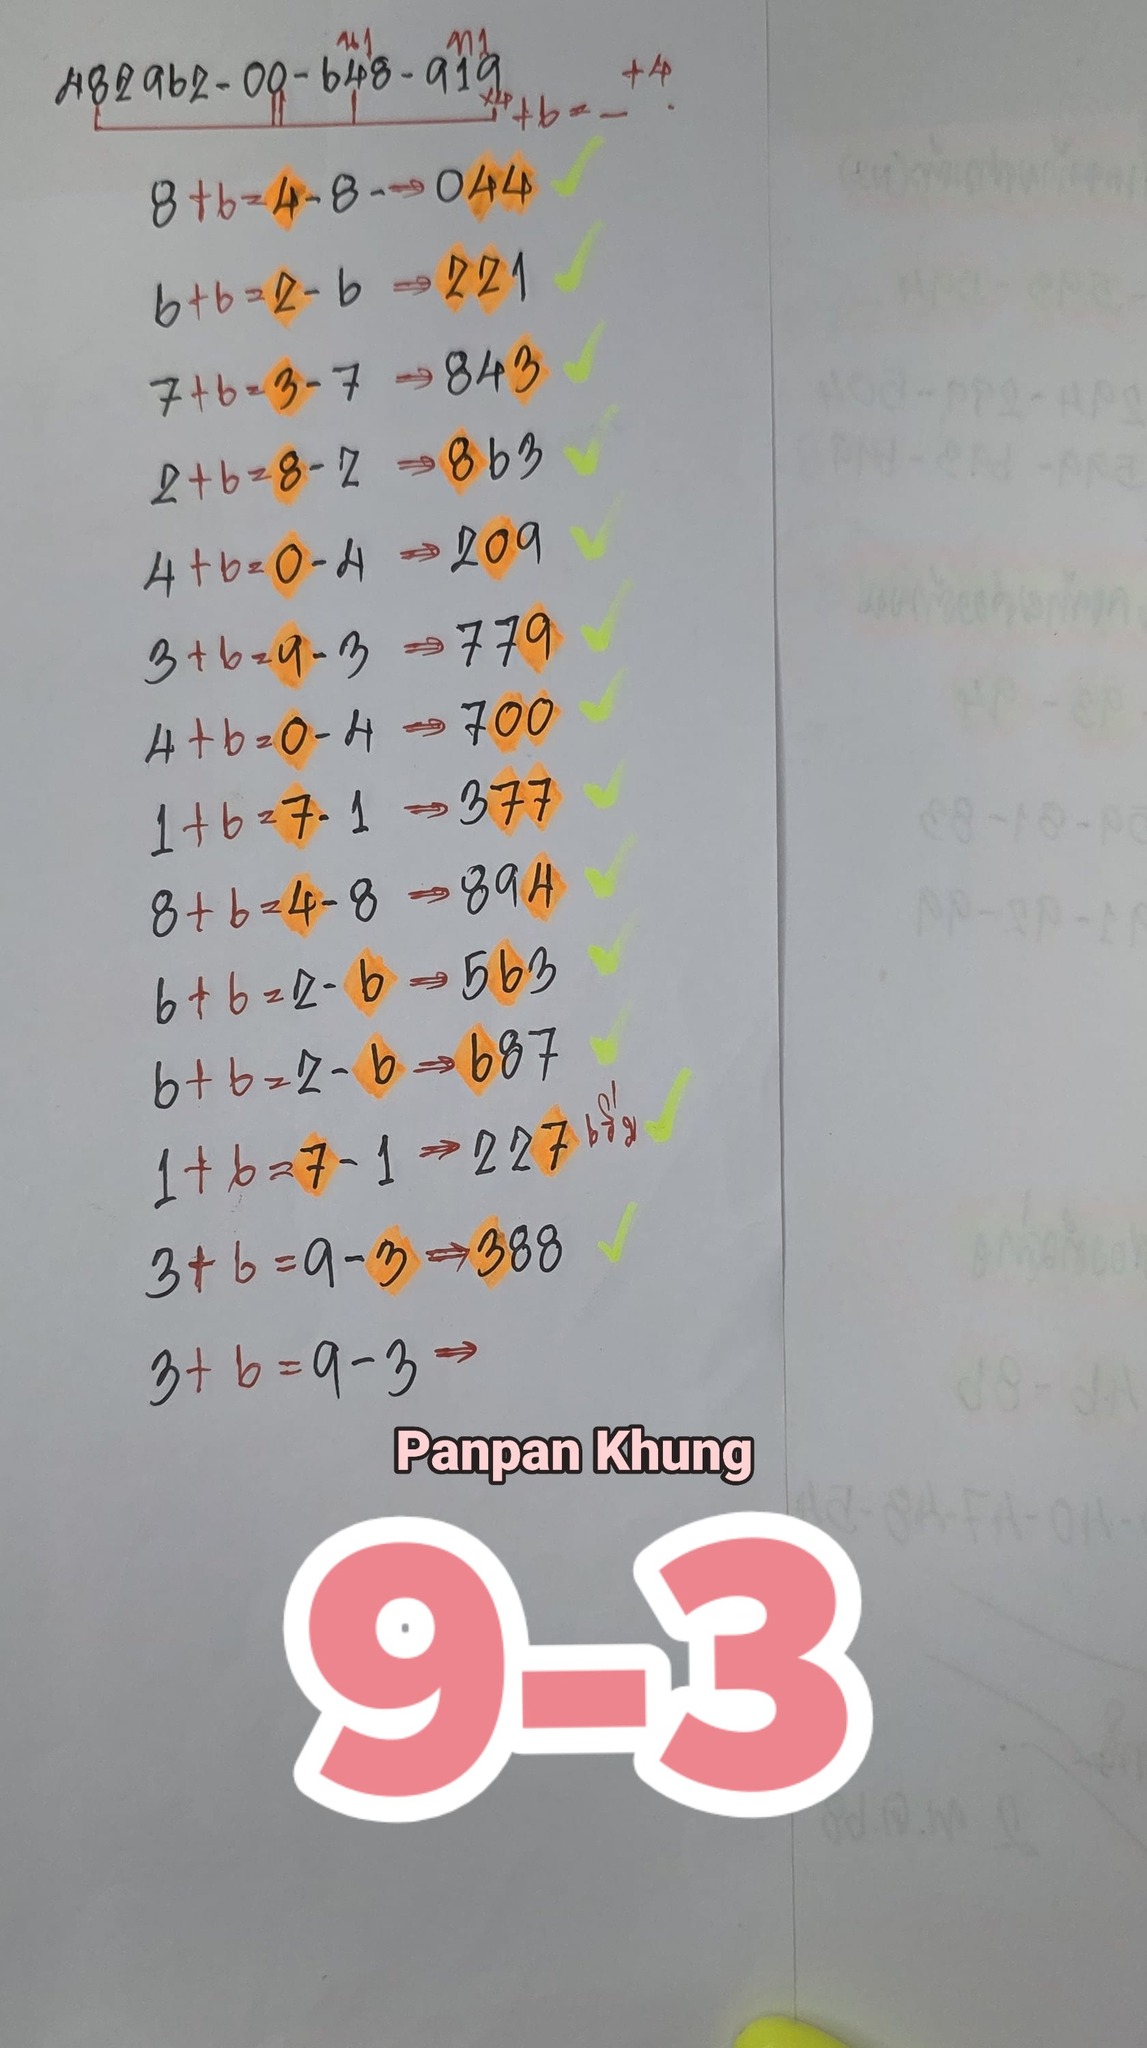 น1 ท1
482962-00-648-919
×4 +6 = - +4
8+6=4-8-⇒044 ✓
6+6=2-6 ⇒ 221 ✓
7+6=3-7 ⇒ 843 ✓
2+6=8-2 ⇒ 863 ✓
4+6=0-4 ⇒ 209 ✓
3+6=9-3 ⇒ 779 ✓
4+6=0-4 ⇒ 700 ✓
1+6=7-1 ⇒ 377 ✓
8+6=4-8 ⇒ 894 ✓
6+6=2-6 ⇒ 563 ✓
6+6=2-6 ⇒ 687 ✓
1+6=7-1 ⇒ 227 ✓
3+6=9-3 ⇒ 388 ✓
3+6=9-3 ⇒
Panpan Khung
9-3